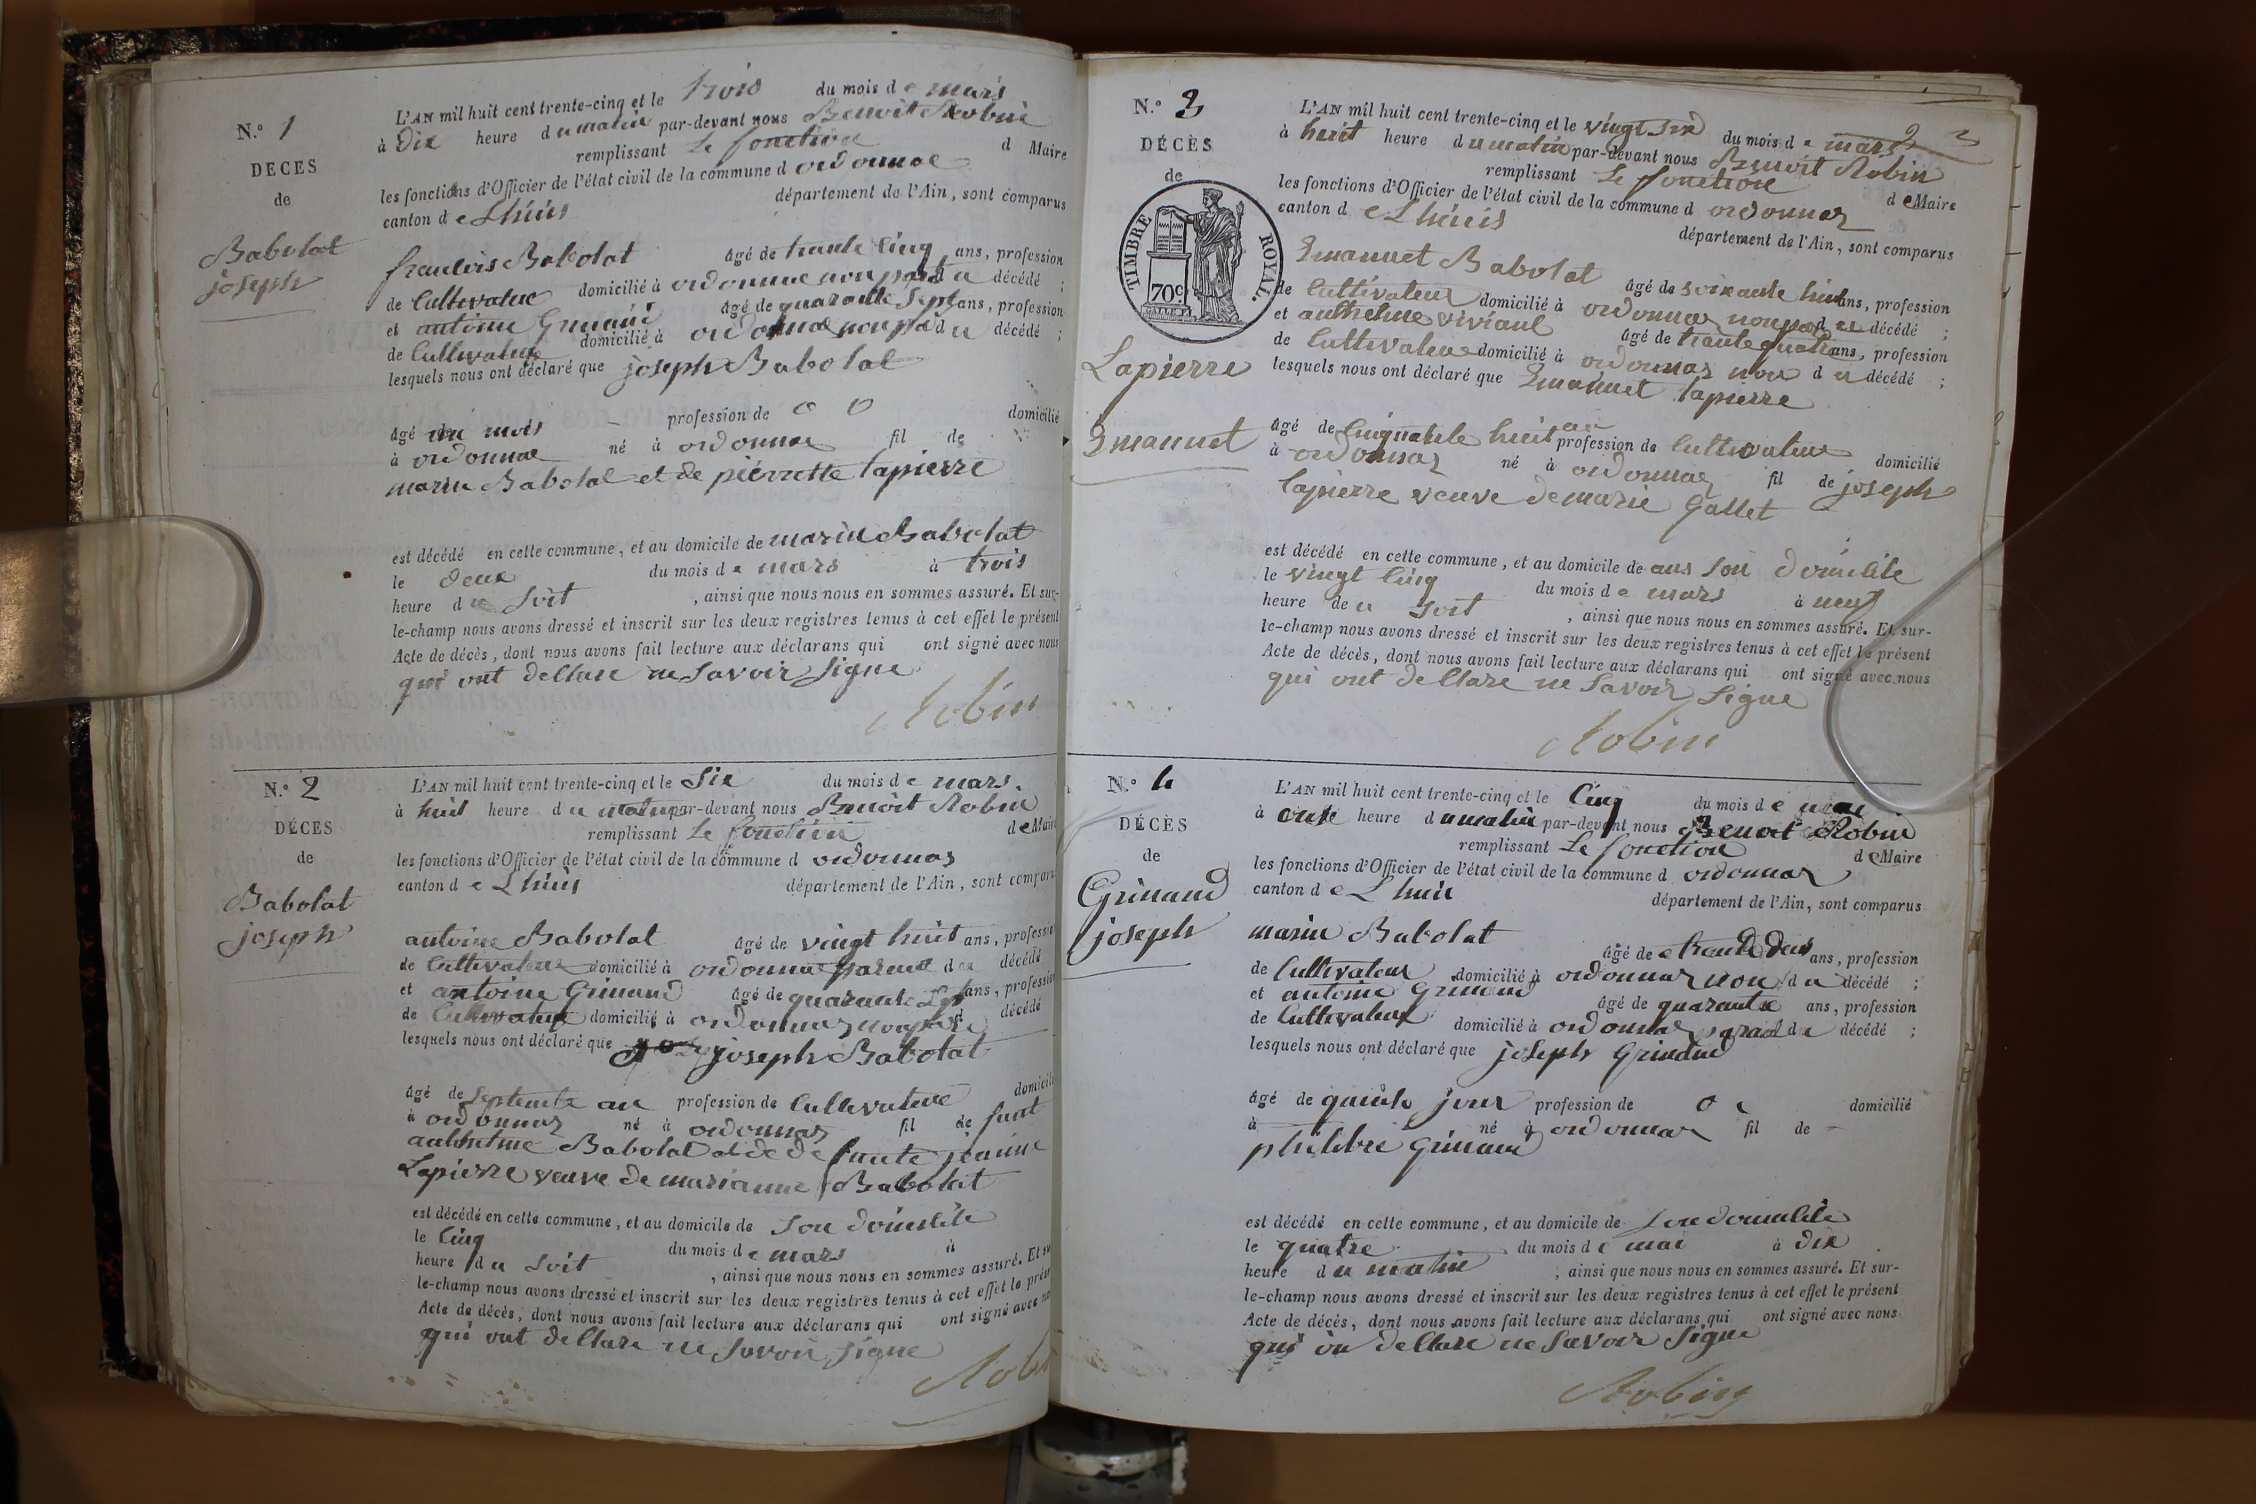 N.o 1
DECES
de
Babolat
joseph
L'AN mil huit cent trente-cinq et le trois du mois d e mars
à dix heure d u matin par-devant nous Benoit Robin
remplissant Le fonction d Maire
les fonctions d'Officier de l'état civil de la commune d ordonnac
canton d e Lhuis département de l'Ain, sont comparus
francois Babolat âgé de trante cinq ans, profession
de Cultivateur domicilié à ordonnac non pard u décédé ;
et antoine Grinand âgé de quarante sept ans, profession
de Cultivateur domicilié à ordonnac non par d u décédé ;
lesquels nous ont déclaré que joseph Babolat
âgé un mois profession de o o domicilié
à ordonnac né à ordonnac fil de
marin Babolat et de pierrette lapierre
est décédé en cette commune, et au domicile de marin Babolat
le deux du mois d e mars à trois
heure d u soit , ainsi que nous nous en sommes assuré. Et sur-
le-champ nous avons dressé et inscrit sur les deux registres tenus à cet effet le présent
Acte de décès, dont nous avons fait lecture aux déclarans qui ont signé avec nous
qui ont dellare ne savoir signe
Robin
N.o 2
DÉCES
de
Babolat
joseph
L'AN mil huit cent trente-cinq et le six du mois d e mars
à huit heure d u matin par-devant nous Benoit Robin
remplissant Le fonction d e Maire
les fonctions d'Officier de l'état civil de la commune d ordonnas
canton d e Lhuis département de l'Ain, sont compar
antoine Babolat âgé de vingt huit ans, profession
de Cultivateur domicilié à ordonnac parend d u décédé
et antoine Grinand âgé de quarante sept ans, profession
de Cultivateur domicilié à ordonnas non par d décédé
lesquels nous ont déclaré que joseph Babolat
âgé de septente an profession de Cultivateur domicilié
à ordonnas né à ordonnas fil de fut
anthelme Babolat et de de fute jeanne
Lapierre veuve de marianne Babolat
est décédé en cette commune, et au domicile de son domilile
le cinq du mois d e mars à
heure d u soit , ainsi que nous nous en sommes assuré. Et su
le-champ nous avons dressé et inscrit sur les deux registres tenus à cet effet le présen
Acte de décès, dont nous avons fait lecture aux déclarans qui ont signé avec no
qui ont dellare ne savoir signe
Robi
N.o 3
DÉCÈS
de
TIMBRE ROYAL.
70c
Lapierre
Emanuet
L'AN mil huit cent trente-cinq et le vingt six du mois d e mars 3
à huit heure d u matin par-devant nous Benoit Robin
remplissant Le fonction d e Maire
les fonctions d'Officier de l'état civil de la commune d ordonnas
canton d e Lhuis département de l'Ain, sont comparus
Emanuet Babolat âgé de soixante huit ans, profession
de Cultivateur domicilié à ordonnas non par d u décédé ;
et anthelme viviant âgé de trante quatre ans, profession
de Cultivateur domicilié à ordonnas non d u décédé ;
lesquels nous ont déclaré que Emanuet lapierre
âgé de cinquante huit an profession de Cultivateur domicilié
à ordonnas né à ordonnas fil de joseph
lapierre veuve de marie Gallet
est décédé en cette commune, et au domicile de ans son domilile
le vingt cinq du mois d e mars à neuf
heure de u soit , ainsi que nous nous en sommes assuré. Et sur-
le-champ nous avons dressé et inscrit sur les deux registres tenus à cet effet le présent
Acte de décès, dont nous avons fait lecture aux déclarans qui ont signé avec nous
qui ont dellare ne savoir signe
Robin
N.o 4
DÉCÈS
de
Grinand
joseph
L'AN mil huit cent trente-cinq et le cinq du mois d e mai
à onze heure d u matin par-devant nous Benoit Robin
remplissant Le fonction d e Maire
les fonctions d'Officier de l'état civil de la commune d ordonnas
canton d e Lhuis département de l'Ain, sont comparus
marin Babolat âgé de trante deus ans, profession
de Cultivateur domicilié à ordonnas non d u décédé ;
et antoine Grinand âgé de quarante ans, profession
de Cultivateur domicilié à ordonnas parad d u décédé ;
lesquels nous ont déclaré que joseph Grinand
âgé de quinze jour profession de o domicilié
à né à ordonnas fil de
philibre Grinand
est décédé en cette commune, et au domicile de son domilile
le quatre du mois d e mai à dix
heure d u matin , ainsi que nous nous en sommes assuré. Et sur-
le-champ nous avons dressé et inscrit sur les deux registres tenus à cet effet le présent
Acte de décès, dont nous avons fait lecture aux déclarans qui ont signé avec nous
qui on dellare ne savoir signe
Robin